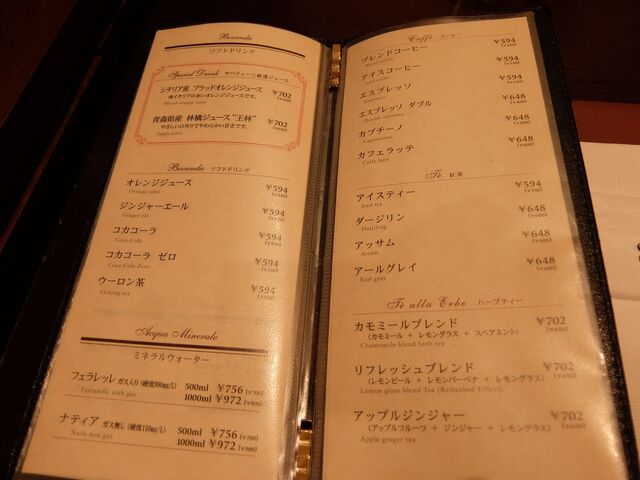 Bevanda
ソフトドリンク
Special Drink サバティーニ厳選ジュース
シチリア産 ブラッドオレンジジュース ￥702
南イタリアの赤いオレンジジュースです。 (￥650)
Blood orange juice
青森県産 林檎ジュース “王林” ￥702
やさしい口当りでやわらかい甘さです。 (￥650)
Apple juice
Bevanda ソフトドリンク
オレンジジュース ￥594
Orange juice (￥550)
ジンジャーエール ￥594
Ginger ale (￥550)
コカコーラ ￥594
Coca-Cola (￥550)
コカコーラ ゼロ ￥594
Coca-Cola Zero (￥550)
ウーロン茶 ￥594
Oolong tea (￥550)
Acqua Minerale
ミネラルウォーター
フェラレッレ ガス入り (硬度990mg/L) 500ml ￥756 (￥700)
Ferrarelle with gas 1000ml ￥972 (￥900)
ナティア ガス無し (硬度110mg/L) 500ml ￥756 (￥700)
Natia non gas 1000ml ￥972 (￥900)
Caffè コーヒー
ブレンドコーヒー ￥594
Blend coffee (￥550)
アイスコーヒー ￥594
Iced coffee (￥550)
エスプレッソ ￥594
Espresso (￥550)
エスプレッソ ダブル ￥648
Double espresso (￥600)
カプチーノ ￥648
Cappuccino (￥600)
カフェラッテ ￥648
Caffe latte (￥600)
Tè 紅茶
アイスティー ￥594
Iced tea (￥550)
ダージリン ￥648
Darjiling (￥600)
アッサム ￥648
Assam (￥600)
アールグレイ ￥648
Earl gray (￥600)
Tè alla Erbe ハーブティー
カモミールブレンド ￥702
(カモミール + レモングラス + スペアミント) (￥650)
Chamomile blend herb tea
リフレッシュブレンド ￥702
(レモンピール + レモンバーベナ + レモングラス) (￥650)
Lemon glass blend Tea (Refreshed Effect)
アップルジンジャー ￥702
(アップルフルーツ + ジンジャー + レモングラス) (￥650)
Apple ginger tea